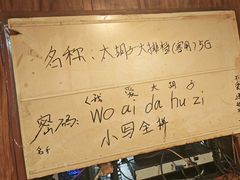 名称：大胡子大排档(富刚)5G
(我 爱 大 胡 子
密码：wo ai da hu zi
小写全拼